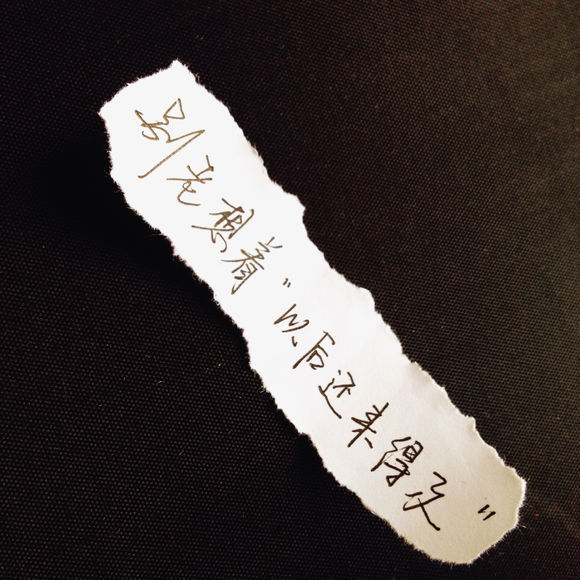 别老想着“以后还来得及”